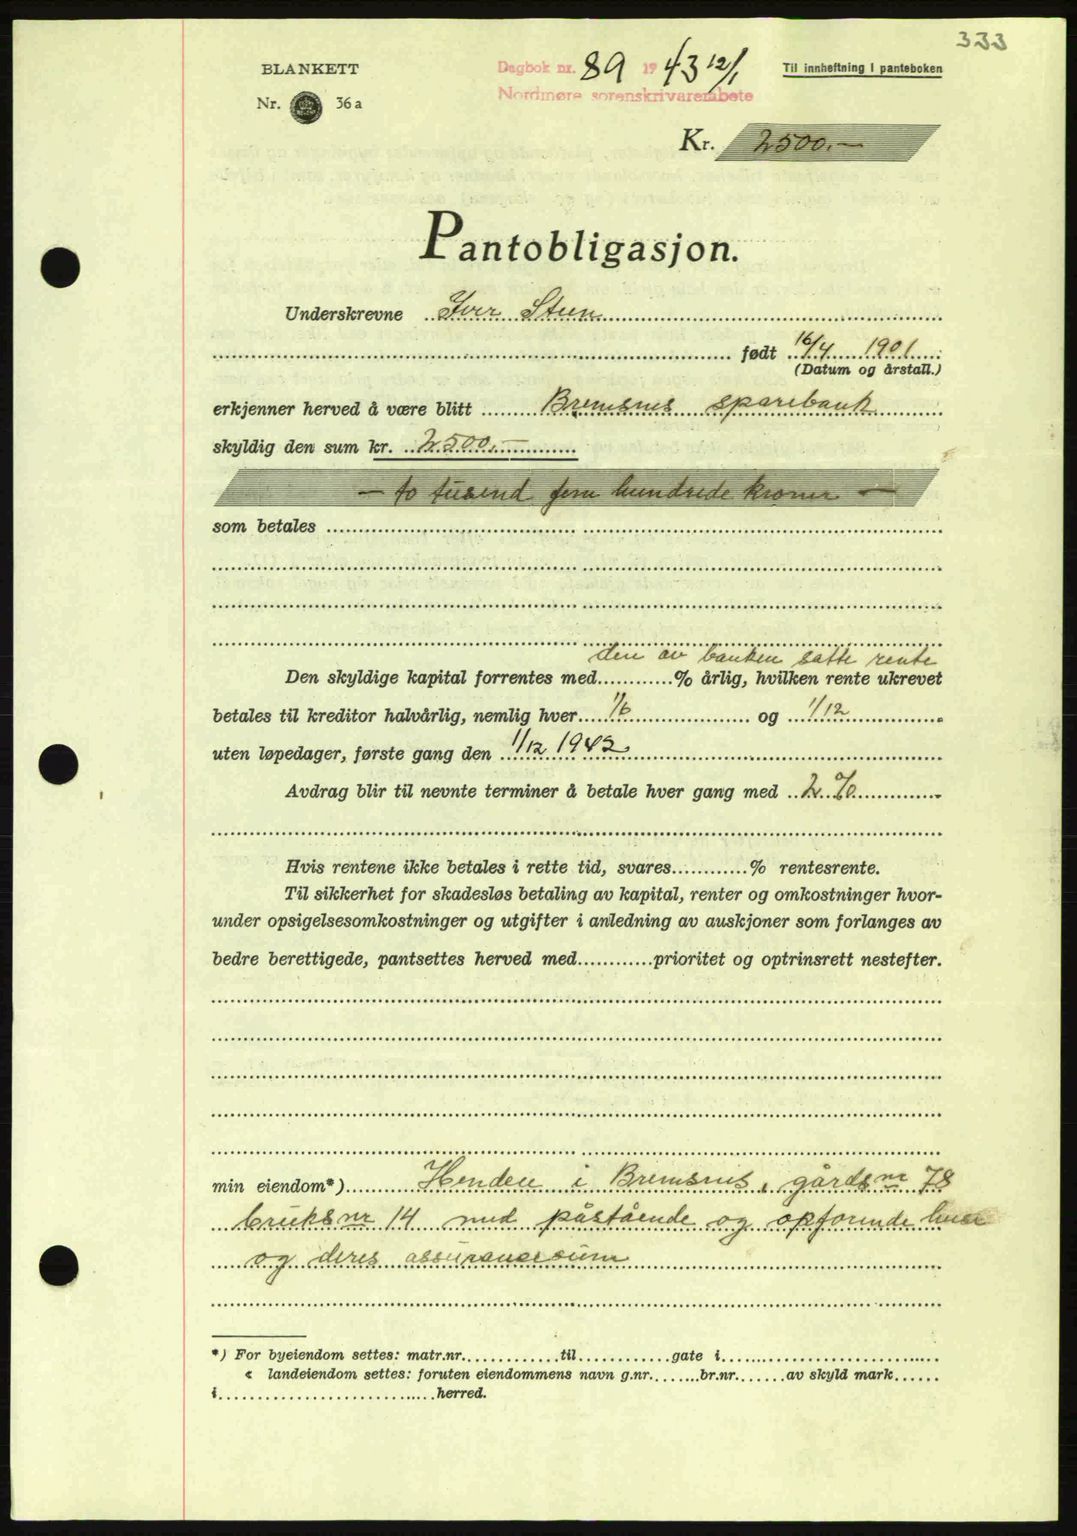 333
BLANKETT
Nr. 36 a
Dagbok nr. 89 1943 12/1
Nordmøre sorenskrivarembete
Til innheftning i panteboken
Kr. 2500.—
Pantobligasjon.
Underskrevne Iver Steen
født 16/4 1901
(Datum og årstall.)
erkjenner herved å være blitt Bremsnes sparebank
skyldig den sum kr. 2500.—
— to tusend fem hundrede kroner —
som betales
den av banken satte rente
Den skyldige kapital forrentes med............% årlig, hvilken rente ukrevet
betales til kreditor halvårlig, nemlig hver 1/6 og 1/12
uten løpedager, første gang den 1/12 1942
Avdrag blir til nevnte terminer å betale hver gang med 2 %
Hvis rentene ikke betales i rette tid, svares............% rentesrente.
Til sikkerhet for skadesløs betaling av kapital, renter og omkostninger hvor-
under opsigelsesomkostninger og utgifter i anledning av auskjoner som forlanges av
bedre berettigede, pantsettes herved med............prioritet og optrinsrett nestefter.
min eiendom*) i Bremsnes, gårdsnr 78
bruksnr 14 med påstående og opførende huse
og deres assuransesum
*) For byeiendom settes: matr.nr..............til..............gate i
« landeiendom settes: foruten eiendommens navn g.nr........br.nr.......av skyld mark......
i............herred.